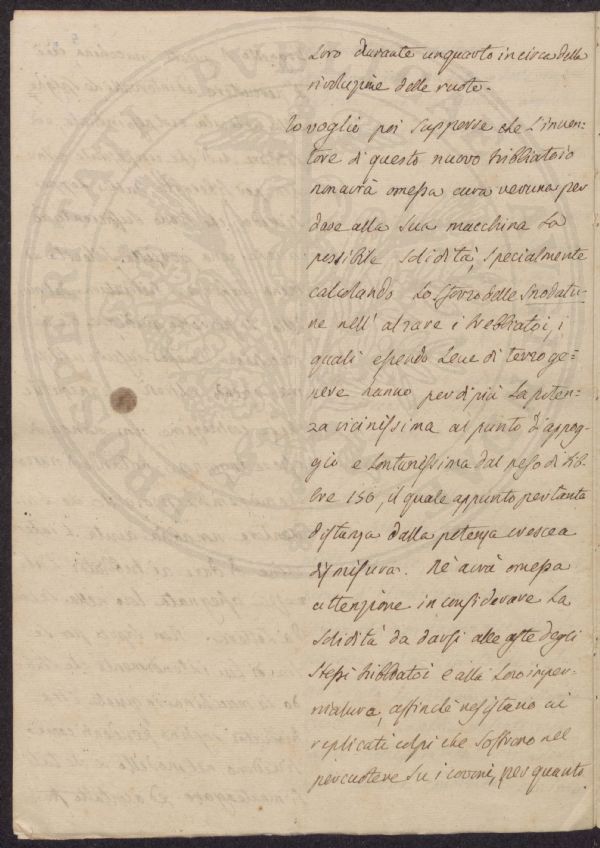 loro durante un quarto in circa della
rivoluzione delle ruote.
Io voglio poi supporre che l'inven=
tore di questo nuovo tribbiatoio
non avrà omessa cura veruna per
dare alla sua macchina la
possibile solidità, specialmente
calcolando lo sforzo delle snodatu=
re nell'alzare i trebbiatoi, i
quali essendo leve di terzo ge=
nere hanno per di più la poten=
za vicinissima al punto d'appog=
gio e lontanissima dal peso di lib=
bre 150, il quale appunto per tanta
distanza dalla potenza cresce a
dismisura. Nè avrà omessa
attenzione in considerare la
solidità da darsi alle aste degli
stessi tribbiatoi e alla loro imper=
niatura, affinchè resistano ai
replicati colpi che soffrono nel
percuotere su i covoni, per quanto